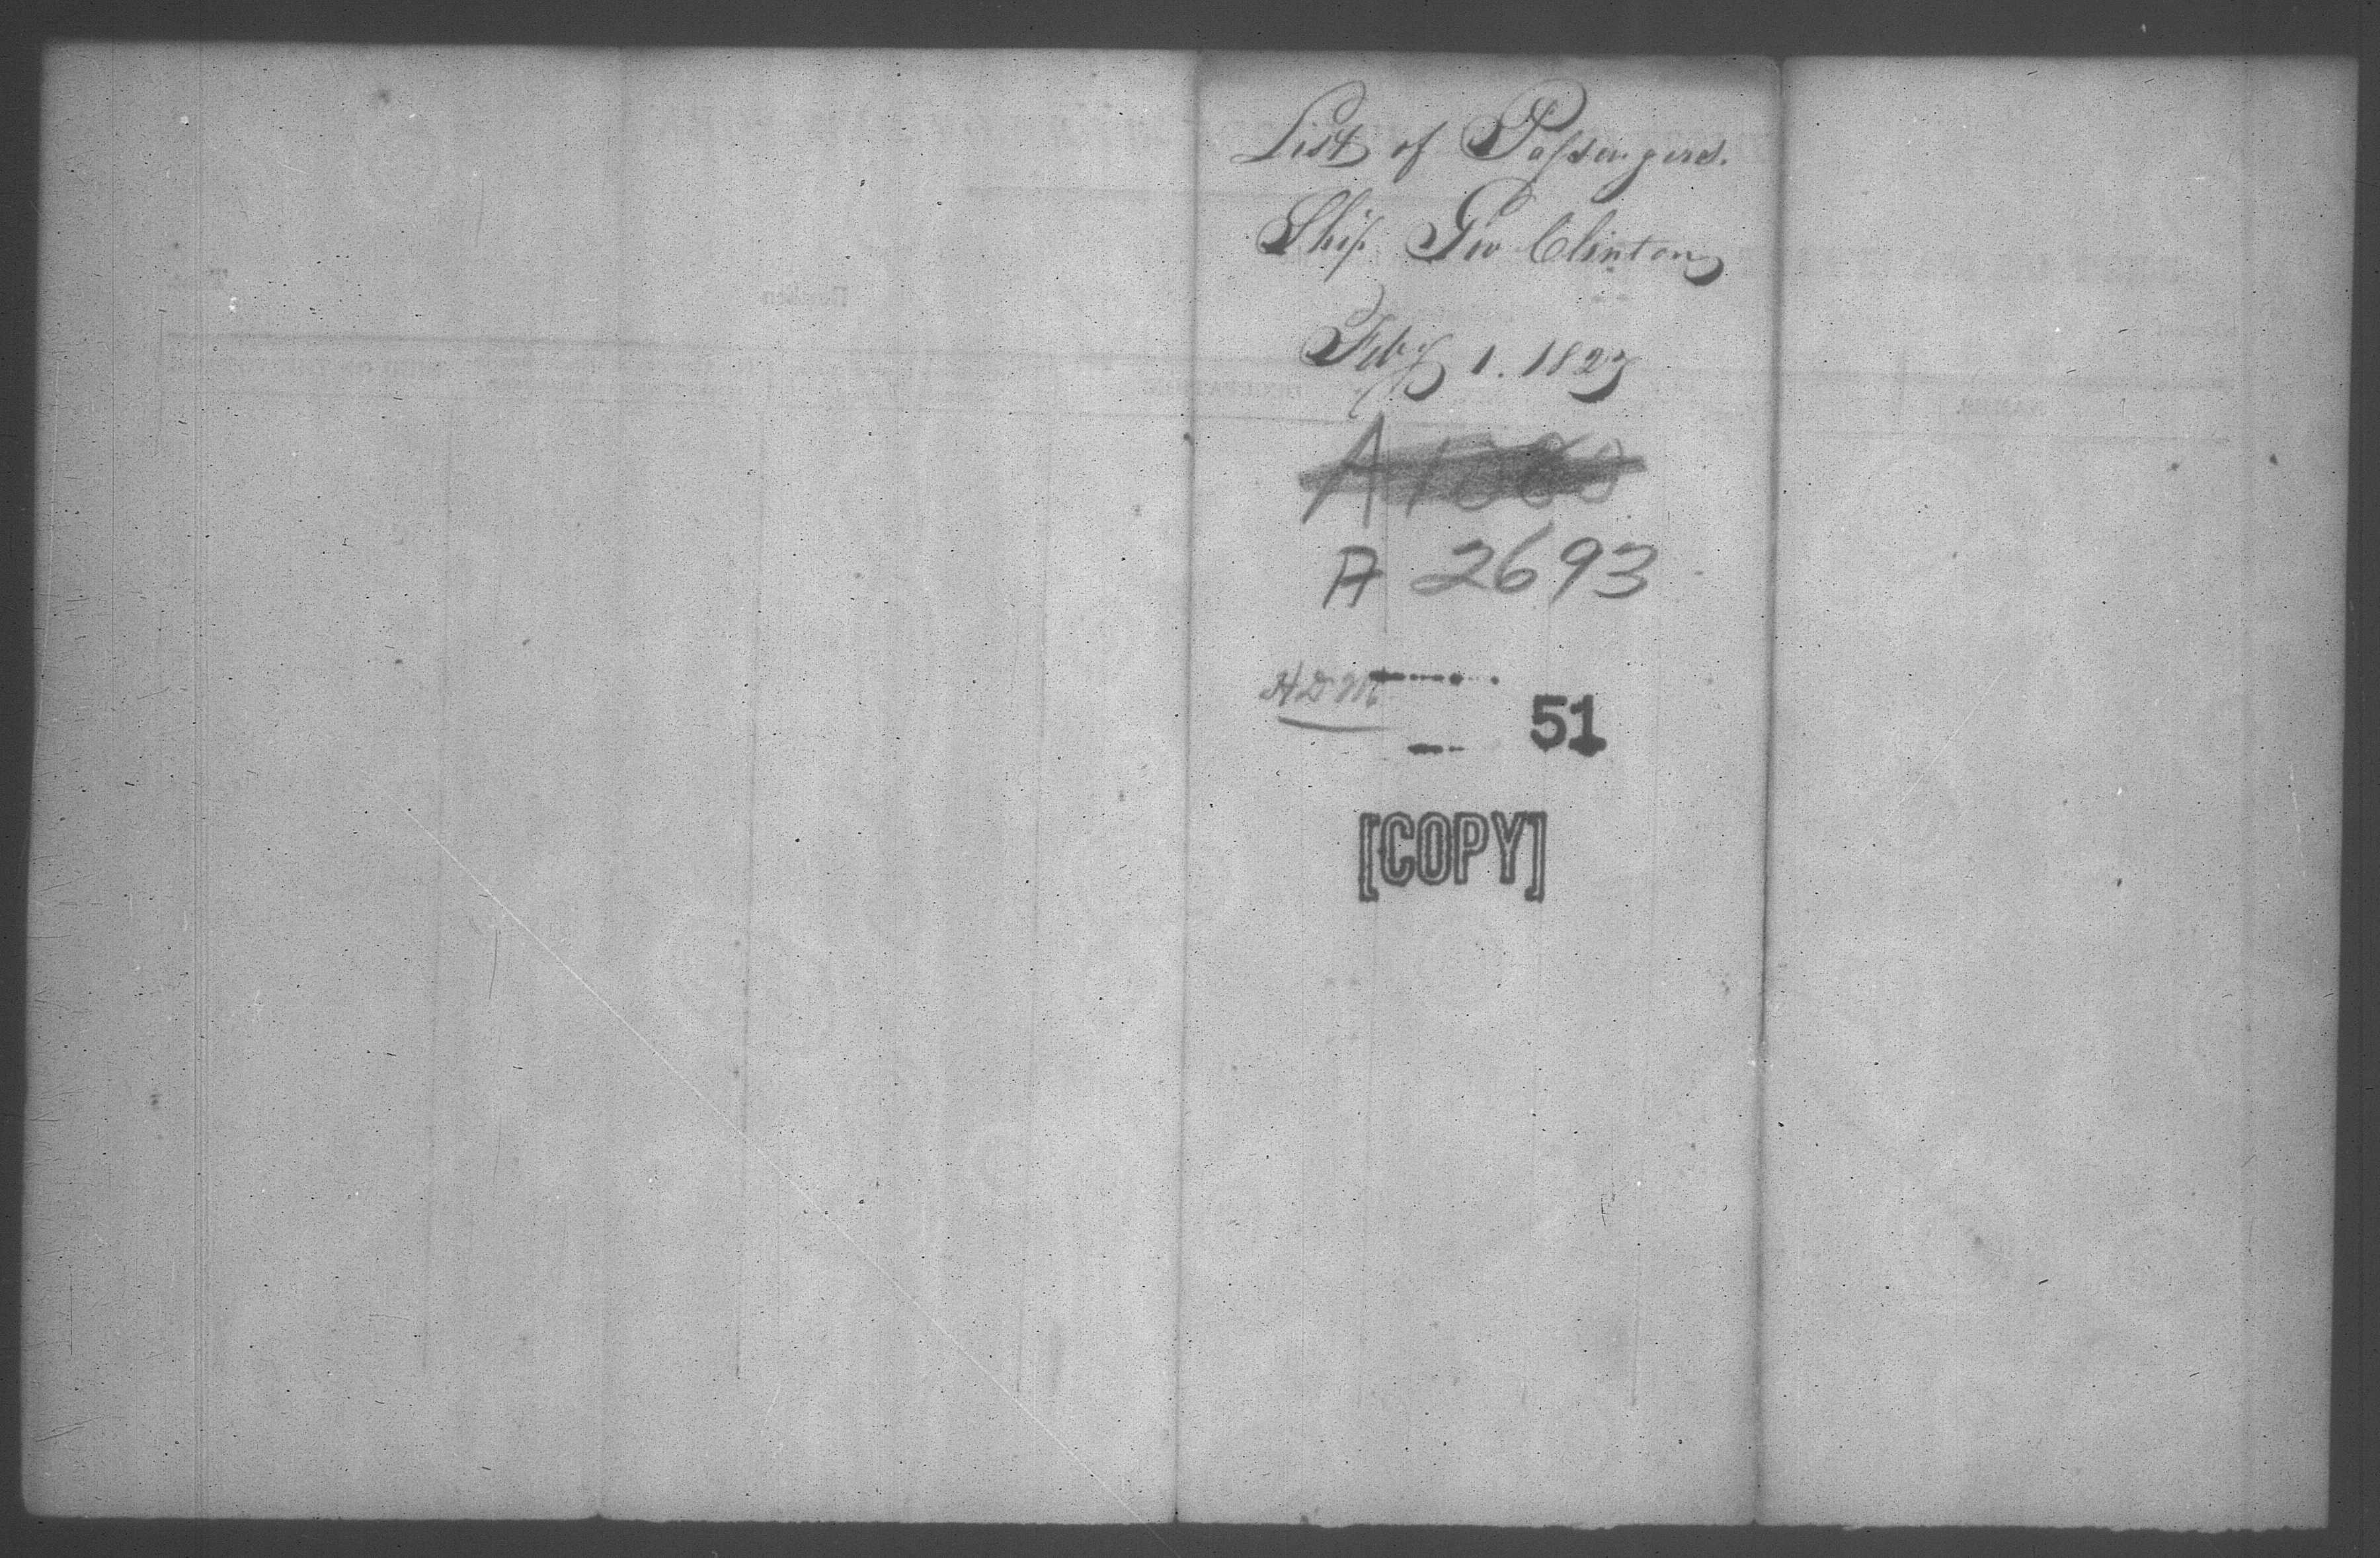 List of Passengers.
Ship Geo Clinton
Feby 1. 1827
A
A 2693
HDM
51
[COPY]